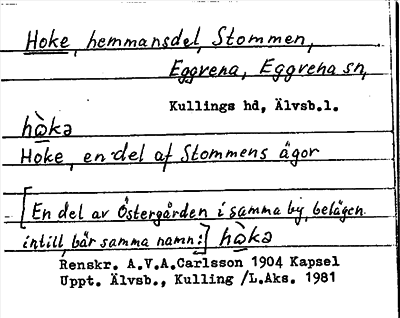 Hoke, hemmansdel, Stommen,
Eggvena, Eggvena sn,
Kullings hd, Älvsb.l.
hò̲kə
Hoke, en del af Stommens ägor
[En del av Östergården i samma by, belägen
intill, bär samma namn:] hò̲kə
Renskr. A.V.A.Carlsson 1904 Kapsel
Uppt. Älvsb., Kulling /L.Aks. 1981